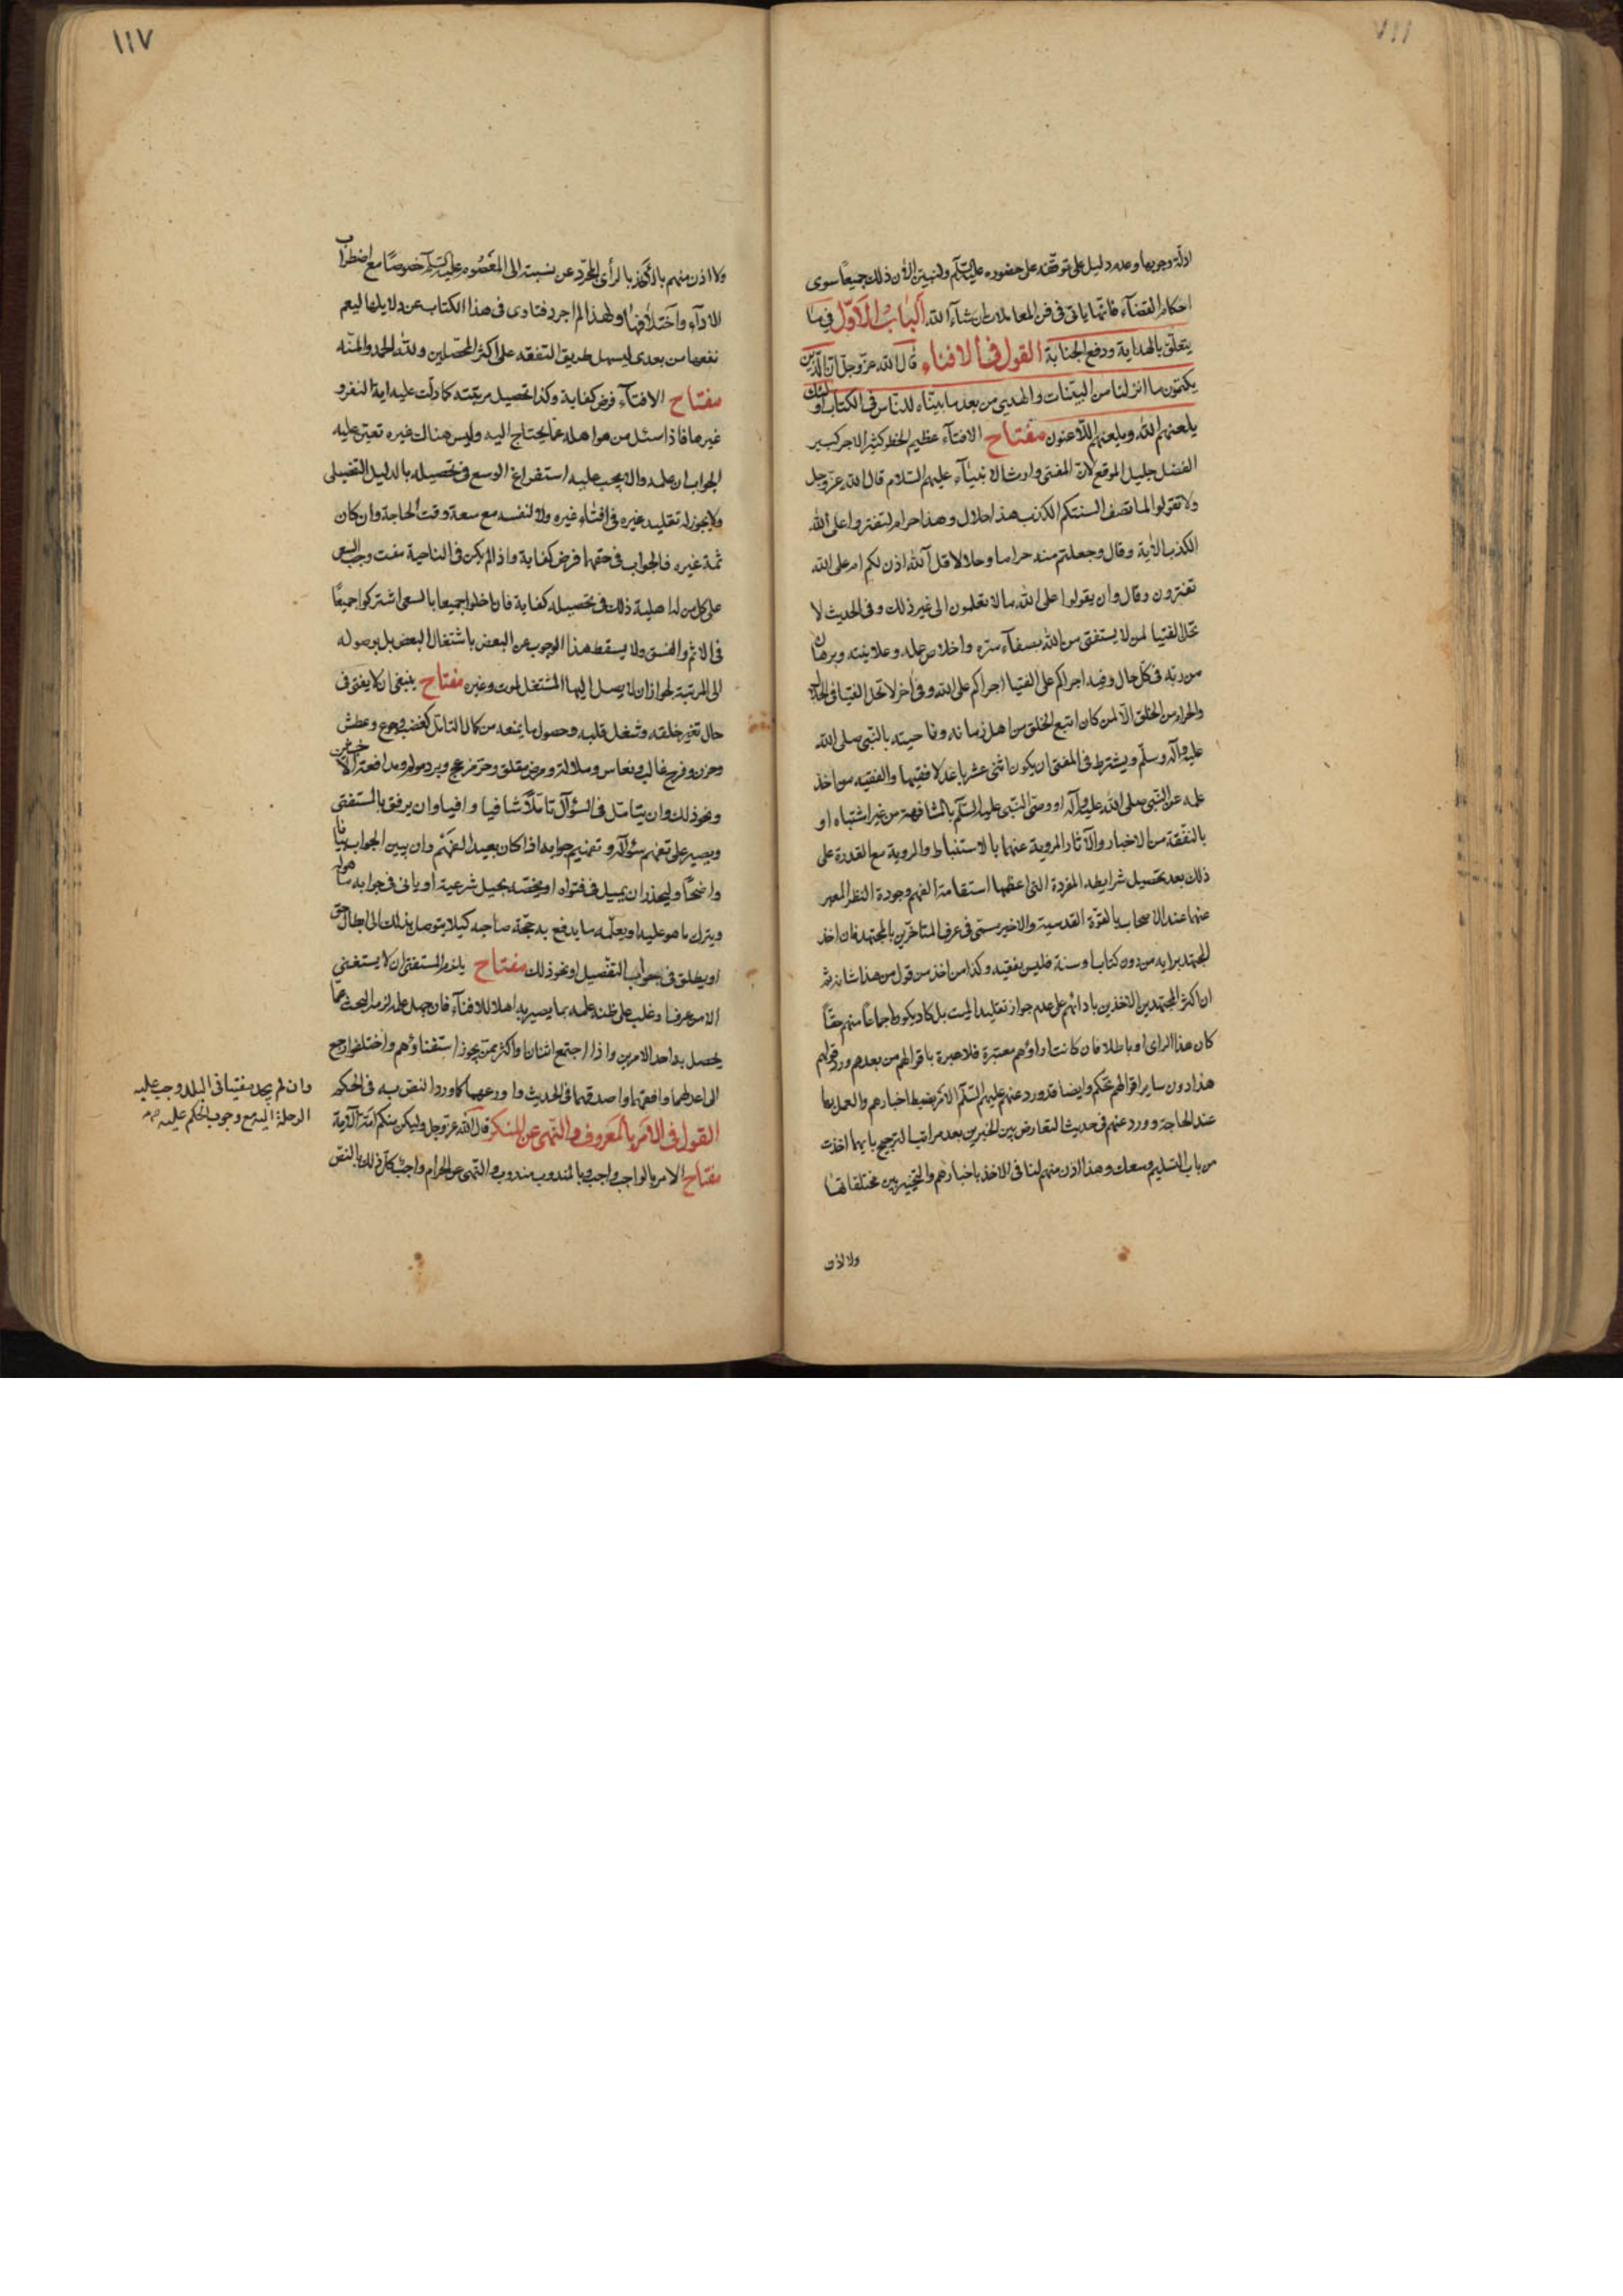 ادلة وجوبها وعدم دليل على توقفه على حضوره عليه السلام ولنبين الآن ذلك جميعا سوى
احكام القضآء فانها ياتى فى فن المعاملات ان شآء الله الباب الاول فى ما
يتعلق بالهداية ودفع الجناية القول فى الافتاء قال الله عز وجل ان الذين
يكتمون ما انزلنا من البينات والهدى من بعد ما بيناه للناس فى الكتاب اولئك
يلعنهم الله ويلعنهم اللاعنون مفتاح الافتآء عظيم الخطر كثير الاجر كبير
الفضل جليل الموقع لان المفتى وارث الانبيآء عليهم السلام قال الله عز وجل
ولا تقولوا لما تصف السنتكم الكذب هذا حلال وهذا حرام لتفتروا على الله
الكذب الآية وقال وجعلتم منه حراما وحلالا قل آلله اذن لكم ام على الله
تفترون وقال وان يقولوا على الله ما لا تعلمون الى غير ذلك وفى الحديث لا
تحل الفتيا لمن لا يستفتى من الله بصفآء سره واخلاص عمله وعلانيته وبرهان
من ربه فى كل حال وفيه اجراكم على الفتيا اجراكم على الله وفى آخر لا تحل الفتيا فى الحلال
والحرام بين الخلق الا لمن كان اتبع الخلق من اهل زمانه وناحيته بالنبى صلى الله
عليه وآله وسلم ويشترط فى المفتى ان يكون اثنى عشريا عدلا فقيها والفقيه من اخذ
علمه عن النبى صلى الله عليه وآله او وصى النبى عليه السلام بالمشافهة من غير اشتباه او
بالتفقه من الاخبار والآثار المروية عنهما بالاستنباط والروية مع القدرة على
ذلك بعد تحصيل شرايطه المقررة التى اعظمها استقامة الفهم وجودة النظر المعبر
عنها عند الاصحاب بالقوة القدسية والاخير يسمى فى عرف المتاخرين بالمجتهد فان اخذ
المجتهد برايه من دون كتاب وسنة فليس بفقيه وكذا من اخذ من قول من هذا شانه ثم
ان اكثر المجتهدين الآخذين بارائهم على عدم جواز تقليد الميت بل كاد يكون اجماعا منهم حقا
كان هذا الراى او باطلا فان كانت اراؤهم معتبرة فلا عبرة باقوالهم من بعدهم ورد قولهم
هذا دون ساير اقوالهم تحكم وايضا قد ورد عنهم عليهم السلم الامر بضبط اخبارهم والعمل بها
عند الحاجة وورد عنهم فى حديث التعارض بين الخبرين بعد مراتب الترجيح بايهما اخذت
من باب التسليم وسعك وهذا اذن منهم لنا فى الاخذ باخبارهم والتخيير بين مختلفاتها
ولا اذن
١١٧
ولا اذن منهم بالاخذ بالرأى المجرد عن نسبته الى المعصوم عليه السلم خصوصا مع اضطراب
الآدآء واختلافها ولهذا لم اجرد فتاوى فى هذا الكتاب عن دلايلها ليعم
نفعها من بعدى وليسهل طريق التفقه على اكثر المحصلين ولله الحمد والمنه
مفتاح الافتآء فرض كفاية وكذا تحصيل مرتبته كما دلت عليه اية النفر و
غيرها فاذا سئل من هو اهله عما يحتاج اليه وليس هناك غيره تعين عليه
الجواب ان علمه والا يجب عليه استفراغ الوسع فى تحصيله بالدليل التفصيلى
ولا يجوز له تقليد غيره فى افتاء غيره ولا لنفسه مع سعة وقت الحاجة وان كان
ثمة غيره فالجواب فى حقهما فرض كفاية واذا لم يكن فى الناحية مفت وجب السعى
على كل من له اهلية ذلك فى تحصيله كفاية فان اخلوا جميعا بالسعى اشتركوا جميعا
فى الاثم والفسق ولا يسقط هذا الوجوب عن البعض باشتغال البعض بل بوصوله
الى المرتبة لجواز ان لا يصل اليها المشتغل لموت وغيره مفتاح ينبغى ان لا يفتى فى
حال تغير خلقه وشغل قلبه وحصول ما يمنعه من كمال التامل كغضب وجوع وعطش
وحزن وفرح غالب ونعاس وملالة ومرض مقلق وحر مزعج وبرد مولم ومدافعة الاخبثين
ونحو ذلك وان يتامل فى السؤال تاملا شافيا وافيا وان يرفق بالمستفتى
ويصبر على تفهم سؤاله وتفهيم جوابه اذا كان بعيد الفهم وان يبين الجواب بيانا
واضحا وليحذر ان يميل فى فتواه او يخصه بحيل شرعية او ياتى فى جوابه ما هو له
ويترك ما هو عليه او يعلمه ما يدفع به حجة صاحبه كيلا يتوصل بذلك الى ابطال حق
او يطلق فى جواب التفصيل او نحو ذلك مفتاح يلزم المستفتى ان لا يستفتى
الا من عرف او غلب على ظنه علمه بما يصير به اهلا للافتآء فان جهل علمه لزمه البحث عما
يحصل به احد الامرين واذا اجتمع اثنان واكثر ممن يجوز استفتاؤهم واختلفوا رجح
الى اعدلهما وافقههما واصدقهما فى الحديث واورعهما كما ورد النص به فى الحكم
القول فى الامر بالمعروف والنهى عن المنكر قال الله عز وجل ولتكن منكم امة الآية
مفتاح الامر بالواجب واجب وبالمندوب مندوب والنهى عن الحرام واجب كل ذلك بالنص
وان لم يجد مفتيا فى البلد وجب عليه
الرحلة اليه مع وجوب الحكم عليه